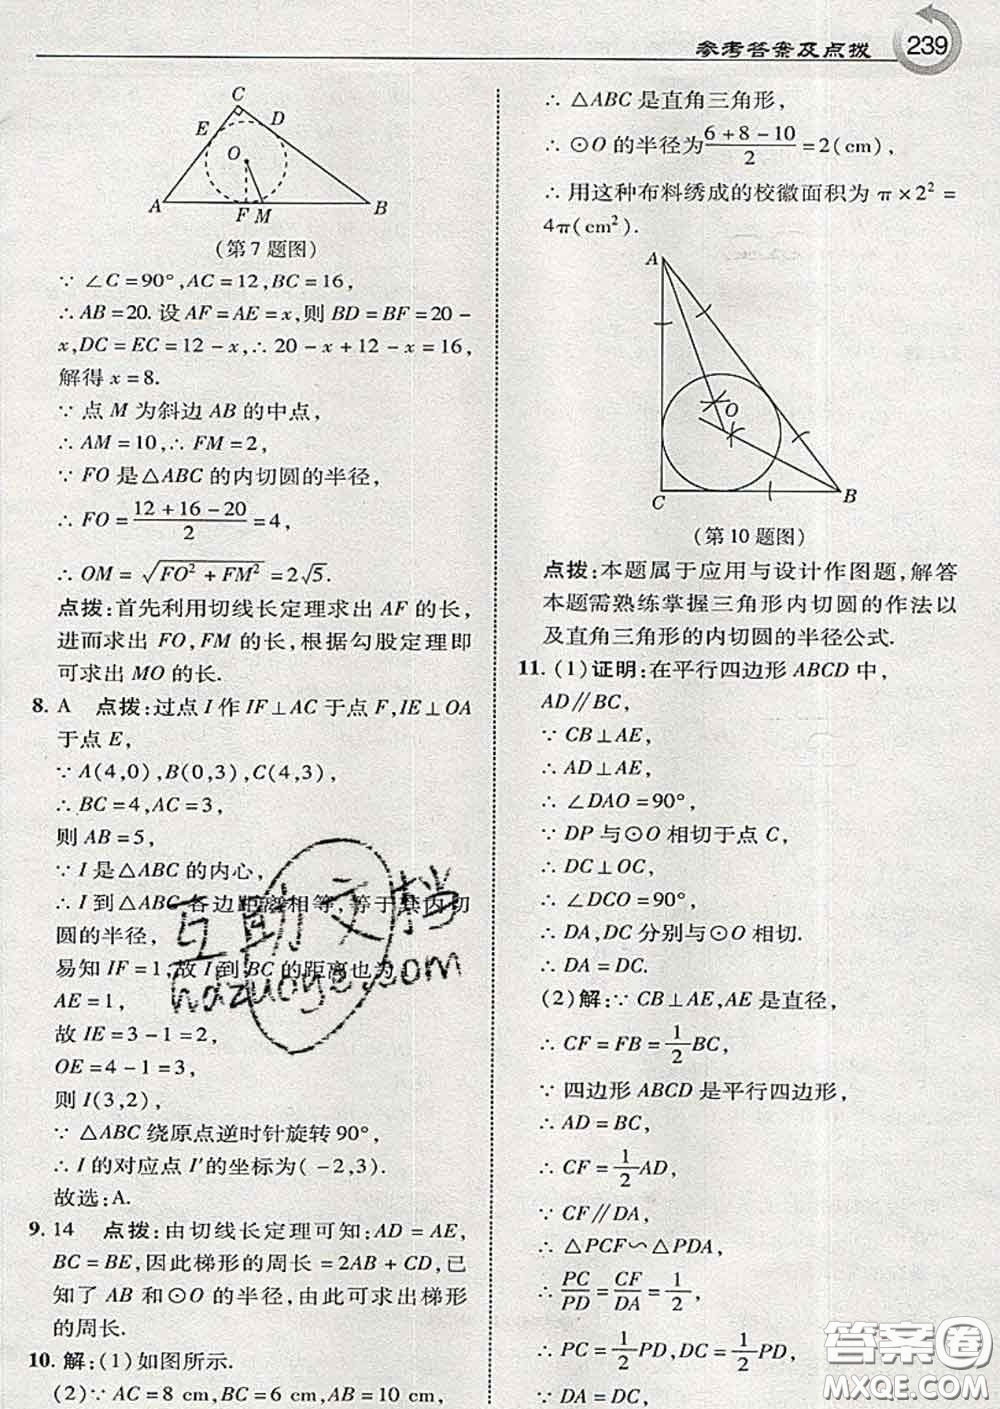 参考答案及点拨 239
C
E
D
O
A
F M
B
(第7题图)
∵ ∠C=90°,AC=12,BC=16,
∴ AB=20. 设 AF=AE=x,则 BD=BF=20-
x,DC=EC=12-x,∴ 20-x+12-x=16,
解得 x=8.
∵ 点 M 为斜边 AB 的中点,
∴ AM=10,∴ FM=2,
∵ FO 是△ABC 的内切圆的半径,
∴ FO=\frac{12+16-20}{2}=4,
∴ OM=\sqrt{FO²+FM²}=2√5.
点拨:首先利用切线长定理求出 AF 的长,
进而求出 FO,FM 的长,根据勾股定理即
可求出 MO 的长.
8. A 点拨:过点 I 作 IF⊥AC 于点 F,IE⊥OA
于点 E,
∵ A(4,0),B(0,3),C(4,3),
∴ BC=4,AC=3,
则 AB=5,
∵ I 是△ABC 的内心,
∴ I 到△ABC 各边距离相等,等于其内切
圆的半径,
易知 IF=1,故 I 到 BC 的距离也为
AE=1,
故 IE=3-1=2,
OE=4-1=3,
则 I(3,2),
∵ △ABC 绕原点逆时针旋转 90°,
∴ I 的对应点 I′的坐标为(-2,3).
故选:A.
9. 14 点拨:由切线长定理可知:AD=AE,
BC=BE,因此梯形的周长=2AB+CD,已
知了 AB 和⊙O 的半径,由此可求出梯形
的周长.
10. 解:(1)如图所示.
(2)∵ AC=8 cm,BC=6 cm,AB=10 cm,
∴ △ABC 是直角三角形,
∴ ⊙O 的半径为\frac{6+8-10}{2}=2(cm),
∴ 用这种布料绣成的校徽面积为 π×2²=
4π(cm²).
A
O
C
B
(第10题图)
点拨:本题属于应用与设计作图题,解答
本题需熟练掌握三角形内切圆的作法以
及直角三角形的内切圆的半径公式.
11. (1)证明:在平行四边形 ABCD 中,
AD∥BC,
∵ CB⊥AE,
∴ AD⊥AE,
∴ ∠DAO=90°,
∵ DP 与⊙O 相切于点 C,
∴ DC⊥OC,
∴ ∠DCO=90°,
∴ DA,DC 分别与⊙O 相切.
∴ DA=DC.
(2)解:∵ CB⊥AE,AE 是直径,
∴ CF=FB=\frac{1}{2}BC,
∵ 四边形 ABCD 是平行四边形,
∴ AD=BC,
∴ CF=\frac{1}{2}AD,
∵ CF∥DA,
∴ △PCF∽△PDA,
∴ \frac{PC}{PD}=\frac{CF}{DA}=\frac{1}{2},
∴ PC=\frac{1}{2}PD,DC=\frac{1}{2}PD,
∵ DA=DC,
互助文档
hdzuoye.com
答案圈
MXQE.COM